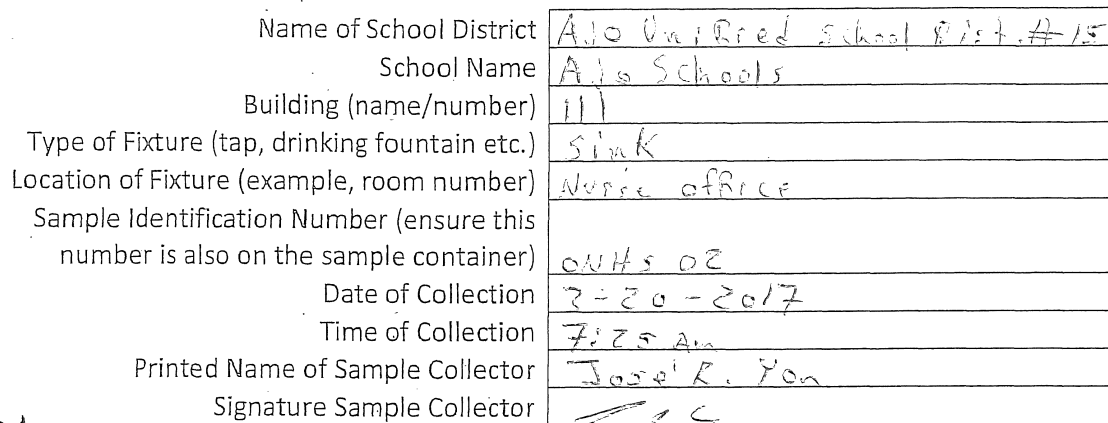 Name of School District Ajo Unified School Dist. #15
School Name Ajo Schools
Building (name/number) 111
Type of Fixture (tap, drinking fountain etc.) Sink
Location of Fixture (example, room number) Nurse office
Sample Identification Number (ensure this
number is also on the sample container) ONHS 02
Date of Collection 2-20-2017
Time of Collection 7:25 Am
Printed Name of Sample Collector José R. Yon
Signature Sample Collector